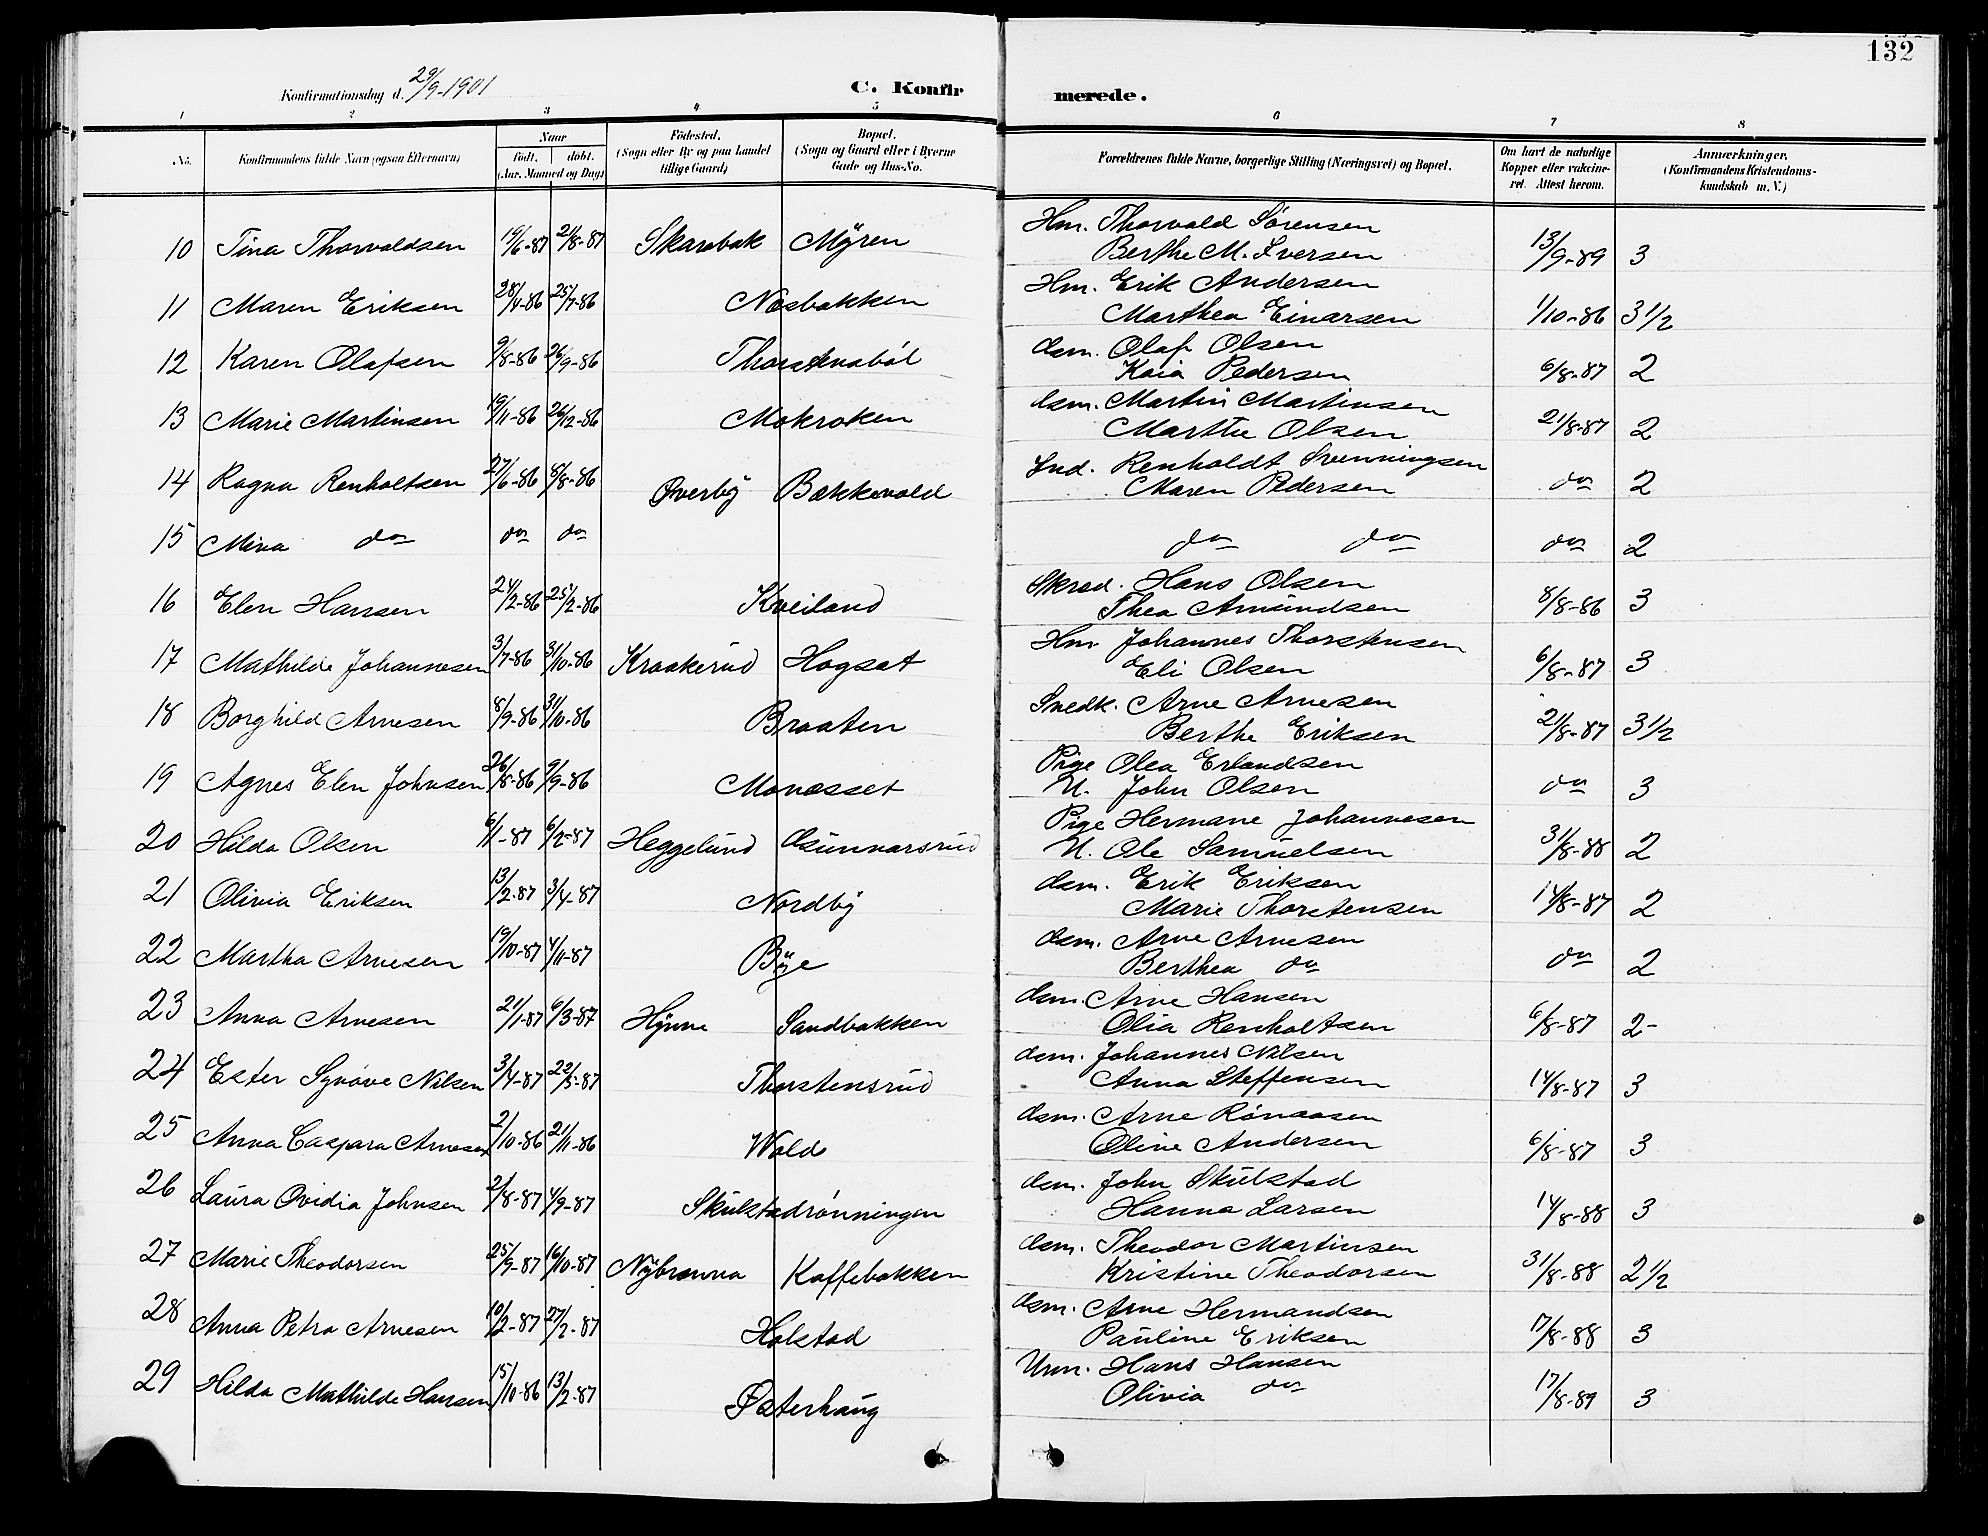 132
Konfirmationsdag d. 29/9-1901
C. Konfirmerede.
1 2 3 4 5 6 7 8
No. Konfirmandens fulde Navn (ogsaa Efternavn) Naar født. døbt. (Aar, Maaned og Dag) Fødested. (Sogn eller By og paa Landet tillige Gaard) Bopæl. (Sogn og Gaard eller i Byerne Gade og Hus-No. Forældrenes fulde Navne, borgerlige Stilling (Næringsvei) og Bopæl. Om havt de naturlige Kopper eller vaccineret. Attest herom. Anmærkninger. (Konfirmandens Kristendomskundskab m. V.)
10 Tina Thorvaldsen 19/6-87 21/8-87 Skarebak Myren Hm. Thorvald Sørensen
Berthe M. Iversen 13/9-89 3
11 Maren Eriksen 28/4-86 25/7-86 Næsbakken Hm. Erik Andersen
Marthea Einarsen 1/10-86 3 1/2
12 Karen Olafsen 9/8-86 26/9-86 Thorstensbøl Gsm. Olaf Olsen
Kaia Pedersen 6/8-87 2
13 Marie Martinsen 19/11-86 26/12-86 Mokroken Gsm. Martin Martinsen
Marthe Olsen 21/8-87 2
14 Ragna Renholtsen 27/6-86 8/8-86 Øverby Bækkevold Ind. Renholdt Svenningsen
Maren Pedersen do 2
15 Mina do do do do do do 2
16 Elen Hansen 24/2-86 25/2-86 Kveiland Skræd. Hans Olsen
Thea Amundsen 8/8-86 3
17 Mathilde Johannesen 3/7-86 31/10-86 Kraakerud Hogsæt Hm Johannes Thorstensen
Eli Olsen 6/8-87 3
18 Borghild Arnesen 8/9-86 31/10-86 Braaten Snedk. Arne Arnesen
Berthe Eriksen 21/8-87 3 1/2
19 Agnes Elen Johnsen 26/8-86 9/9-86 Monæsset Pige Olea Erlandsen
U. John Olsen do 3
20 Hilda Olsen 6/1-87 6/2-87 Heggelund Gunnarsrud Pige Hermane Johannesen
U. Ole Samuelsen 31/8-88 2
21 Olivia Eriksen 13/2-87 3/4-87 Nordby Gsm. Erik Eriksen
Marie Thorstensen 14/8-87 2
22 Martha Arnesen 19/10-87 4/11-87 Bye Gsm. Arne Arnesen
Berthea do do 2
23 Anna Arnesen 21/1-87 6/3-87 Hynne Sandbakken Gsm. Arne Hansen
Olia Renholtsen 6/8-87 2-
24 Ester Synøve Nilsen 3/4-87 22/5-87 Thorstensrud Gsm. Johannes Nilsen
Anna Steffensen 14/8-87 3
25 Anna Caspara Arnesen 2/10-86 21/11-86 Wold Gsm. Arne
Oline Andersen 6/8-87 3
26 Laura Ovidia Johnsen 2/8-87 4/9-87 Skulstadrønningen Gsm. John Skulstad
Hanna Larsen 14/8-88 3
27 Marie Theodorsen 25/9-87 16/10-87 Nybrænna Kaffebakken Gsm. Theodor Martinsen
Kristine Theodorsen 31/8-88 2 1/2
28 Anna Petra Arnesen 10/2-87 27/2-87 Holstad Gsm. Arne Hermandsen
Pauline Eriksen 17/8-88 3
29 Hilda Mathilde Hansen 15/10-86 13/2-87 Østerhaug Urm. Hans Hansen
Olivia do 17/8-89 3